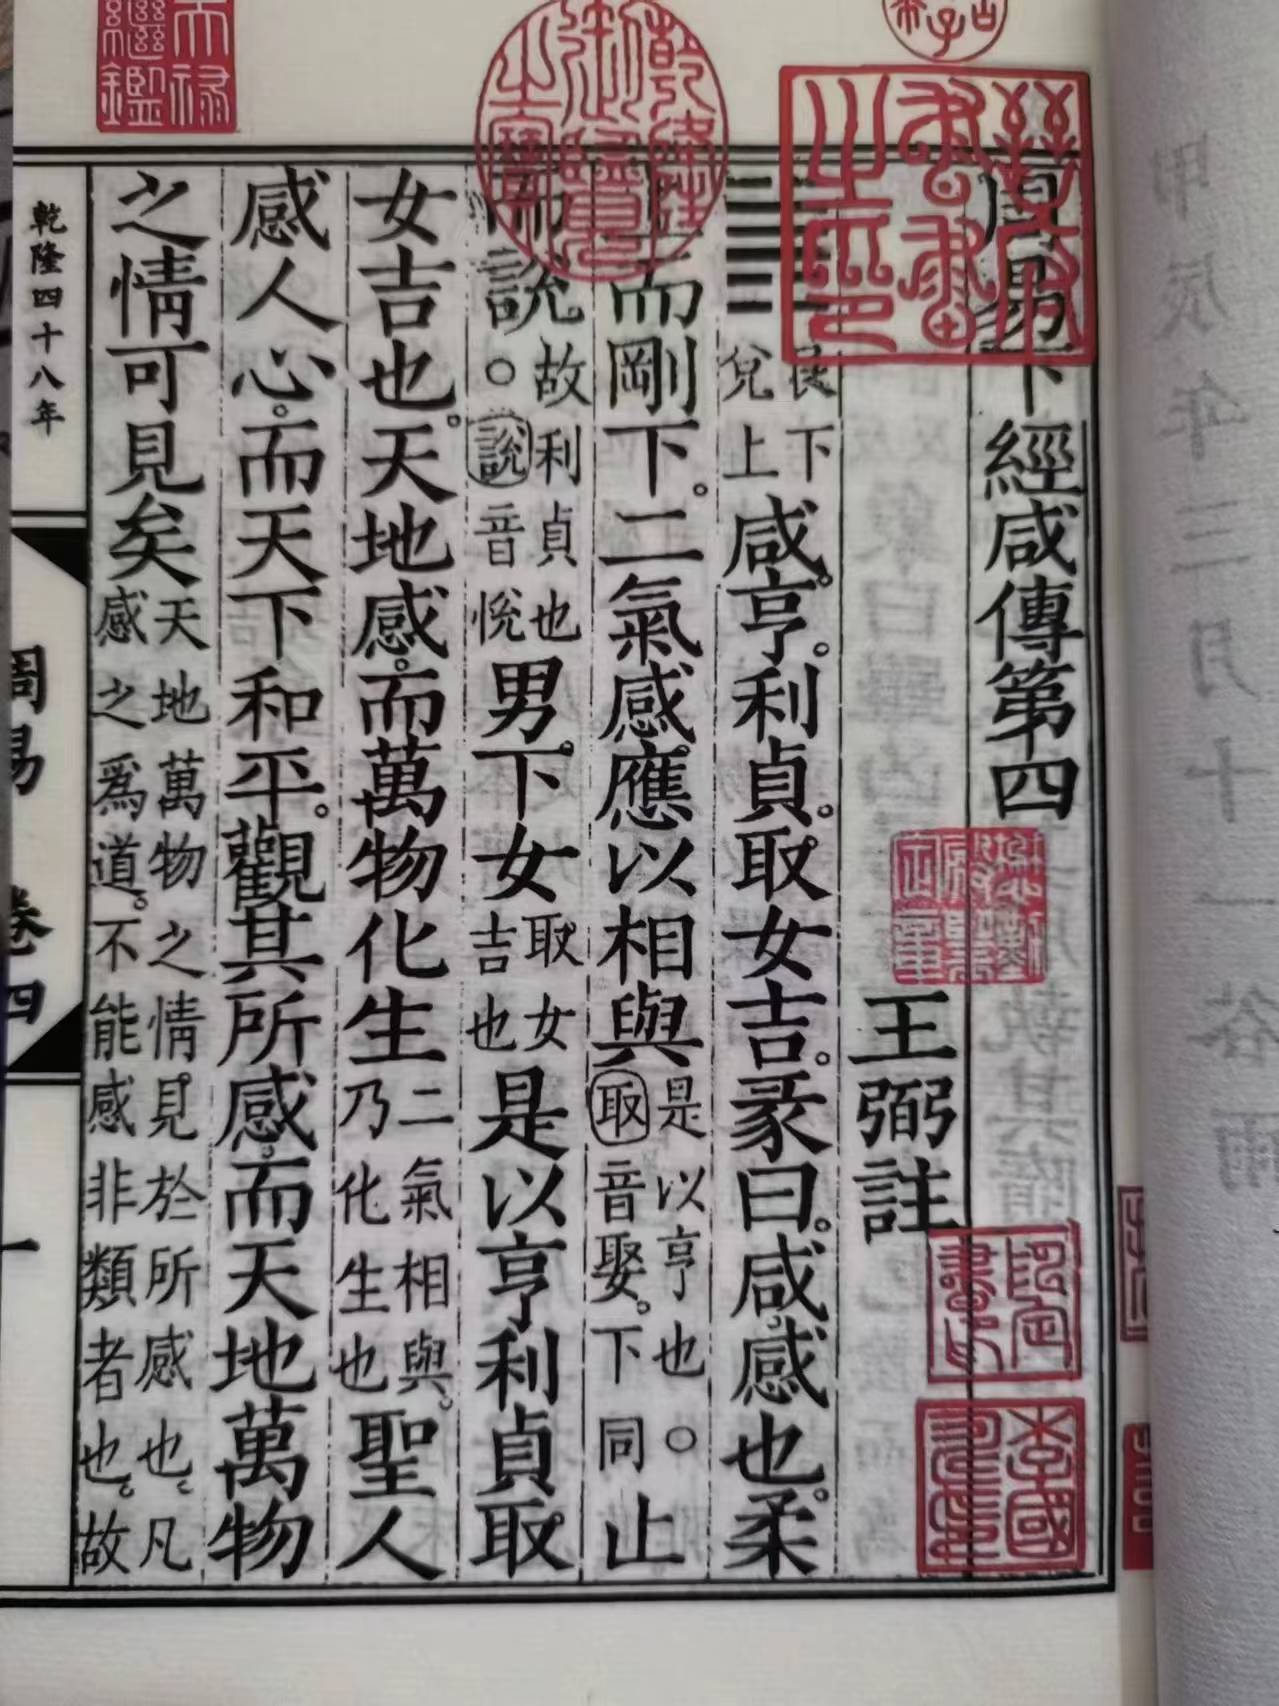 周易下經咸傳第四
王弼註
艮下
兌上
咸。亨。利貞。取女吉。彖曰。咸。感也。柔
上而剛下。二氣感應以相與
是以亨也○
㊞取音娶。下同
止
而說
故利貞也
○說音悅
男。下女
取女
吉也
是以亨利貞取
女吉也。天地感。而萬物化生
二氣相與。
乃化生也
聖人
感人心。而天下和平。觀其所感。而天地萬物
之情可見矣
天地萬物之情。見於所感也。凡
感之爲道。不能感非類者也。故
乾隆四十八年
周易 卷四
一
乾隆御覽之寶
天祿繼鑑
李國壽印
甲辰年三月十一谷雨